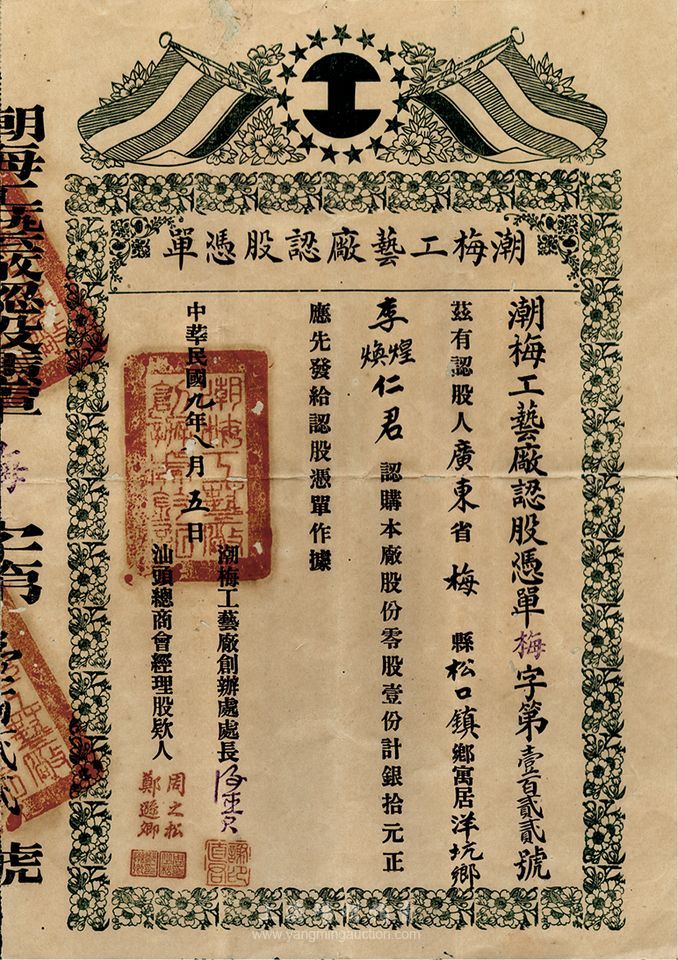 潮梅工藝廠認股憑單
潮梅工藝廠認股憑單梅字第壹百貳貳號
茲有認股人廣東省梅縣松口鎮鄉寓居洋坑鄉
李煌煥仁君認購本廠股份零股壹份計銀拾元正
應先發給認股憑單作據
中華民國九年八月五日
潮梅工藝廠創辦處處長
汕頭總商會經理股欵人
周之松
鄭遜卿
www.yangmingauction.com